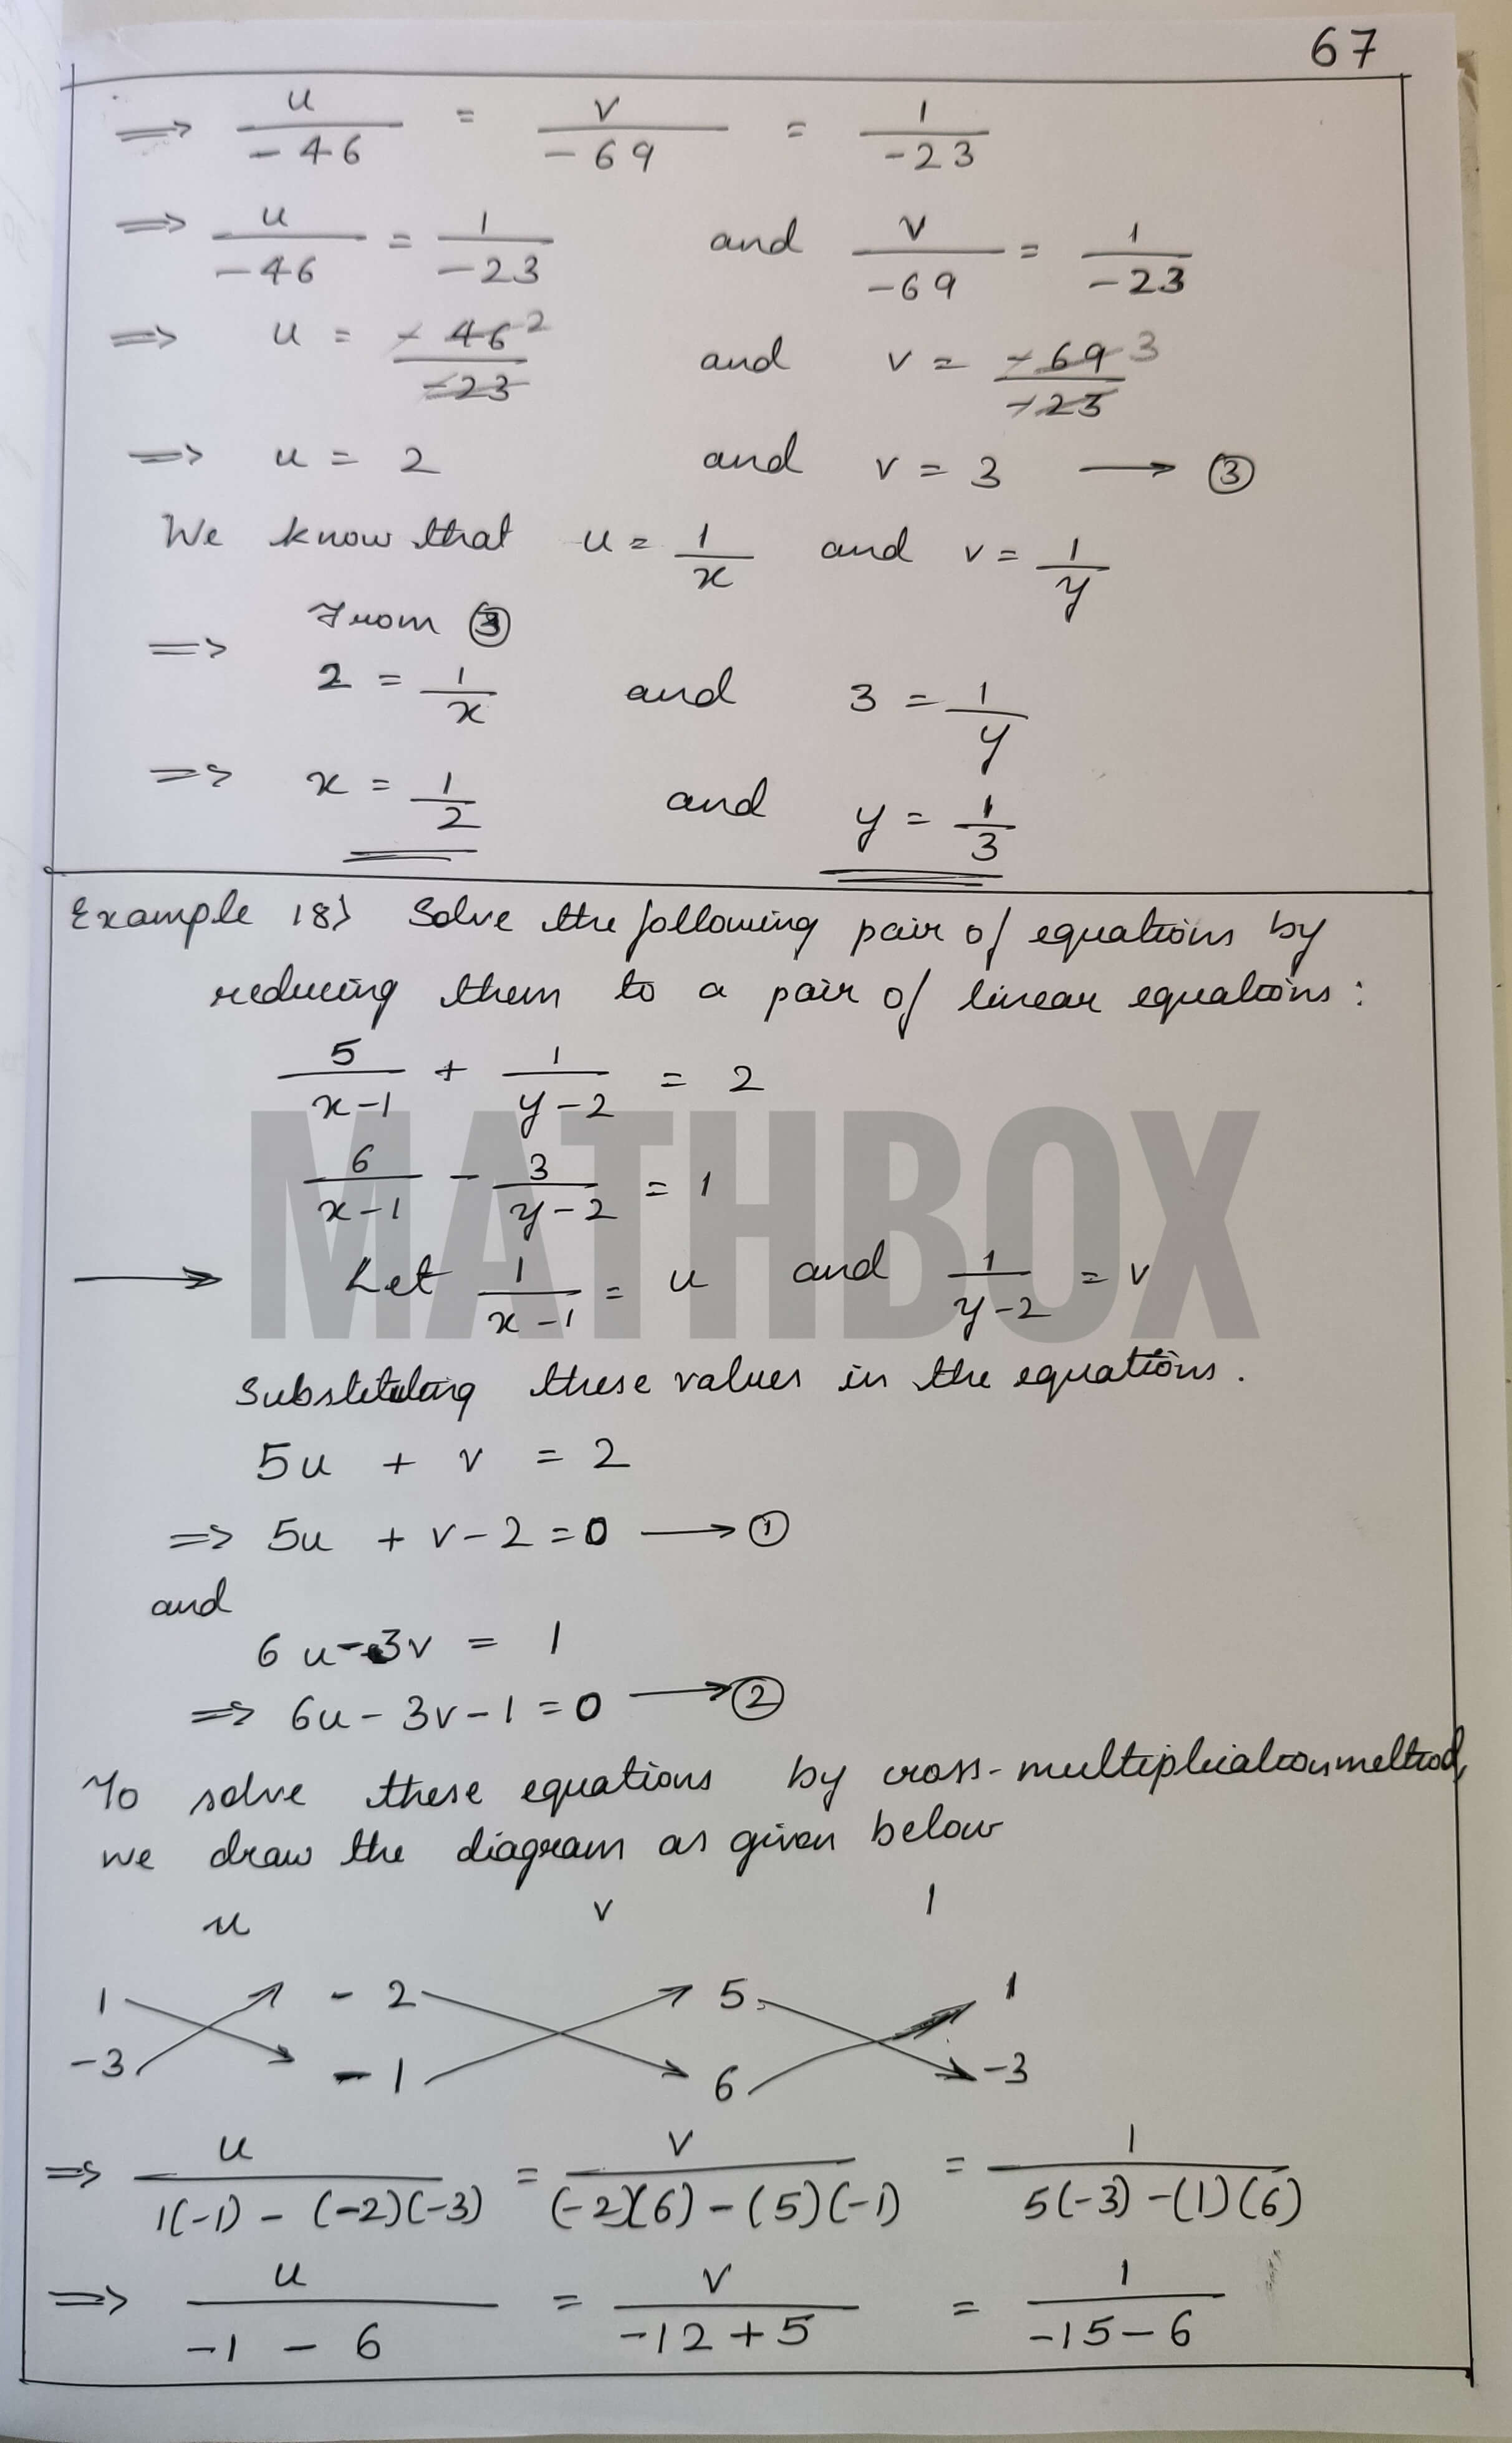 67
⇒ u/-46 = v/-69 = 1/-23
⇒ u/-46 = 1/-23 and v/-69 = 1/-23
⇒ u = -46 2/-23 and v = -69 3/-23
⇒ u = 2 and v = 3 → ③
We know that u = 1/x and v = 1/y
From ③
⇒ 2 = 1/x and 3 = 1/y
⇒ x = 1/2 and y = 1/3
Example 18) Solve the following pair of equations by
reducing them to a pair of linear equations :
5/(x-1) + 1/(y-2) = 2
6/(x-1) - 3/(y-2) = 1
MATHBOX
→ Let 1/(x-1) = u and 1/(y-2) = v
Substituting these values in the equations.
5u + v = 2
⇒ 5u + v - 2 = 0 → ①
and
6u - 3v = 1
⇒ 6u - 3v - 1 = 0 → ②
To solve these equations by cross-multiplication method,
we draw the diagram as given below
u v 1
1 -2 5 1
-3 -1 6 -3
⇒ u/(1(-1) - (-2)(-3)) = v/((-2)(6) - (5)(-1)) = 1/(5(-3) - (1)(6))
⇒ u/(-1 - 6) = v/(-12 + 5) = 1/(-15 - 6)